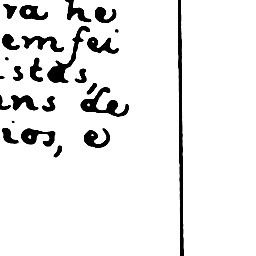 ra he
emfei
istas,
ans de
ios, e